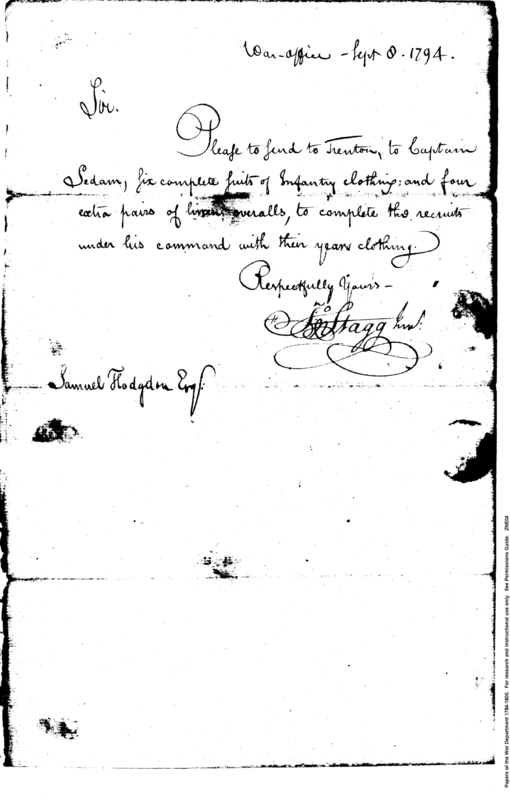 War-office - Sept 8. 1794.
Sir.
Please to send to Trenton, to Captain
Sedam, six complete suits of Infantry clothing; and four
extra pairs of linen overalls, to complete the recruits
under his command with their years clothing.
Respectfully Yours -
Jno Stagg Junr.
Samuel Hodgdon Esqr.
Papers of the War Department 1784-1800. For research and instructional use only. See Permissions Guide. ZNE04